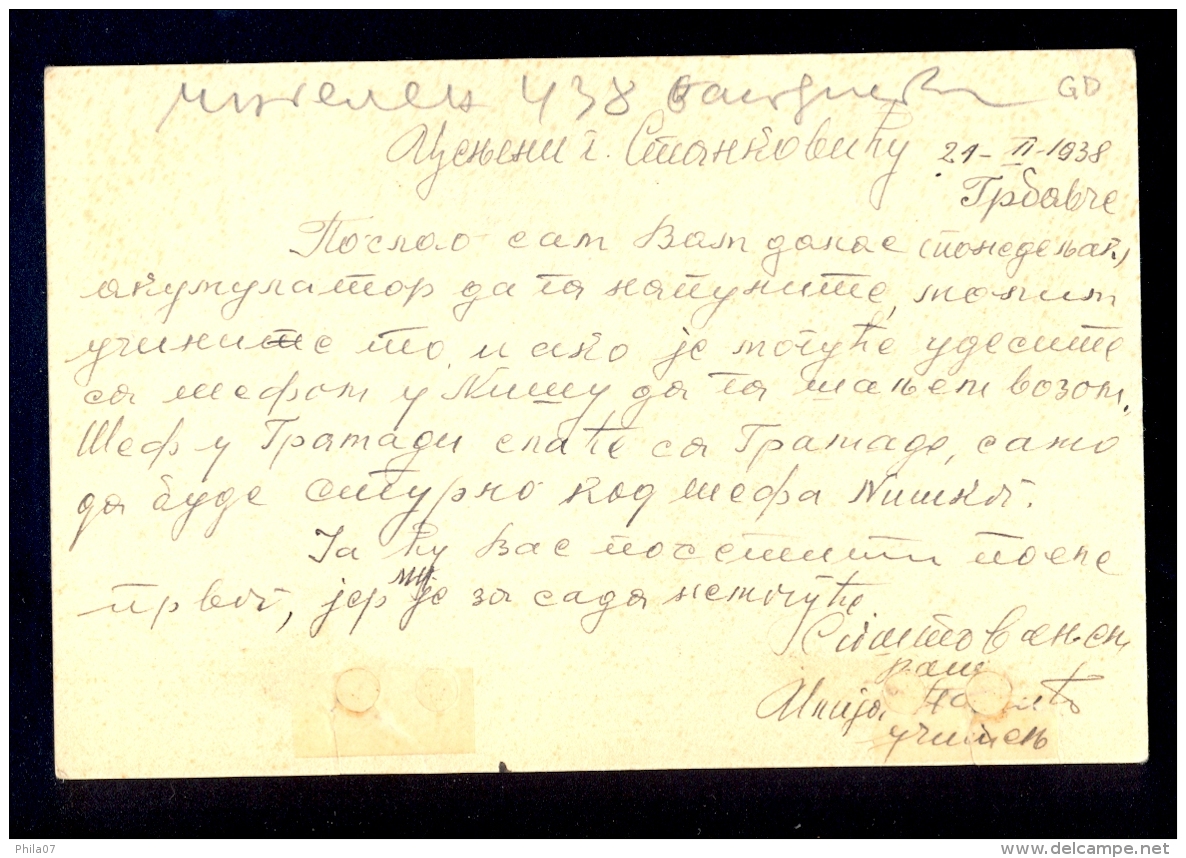 438 GD
Цењени г. Станковићу 21-II-1938
Грбавче
Послао сам Вам данас (понедељак)
акумулатор да га напуните, молим
учините то, и ако је могуће удесите
са шефом у Нишу да га шаљем возом.
Шеф у Грамади слаће са Грамаде, само
да буде сигурно код шефа Нишког.
Ја ћу Вас посетити после
првог, јер ми је за сада немогуће.
С поштовањем
Илија
учитељ
Phila07
delcampe.net